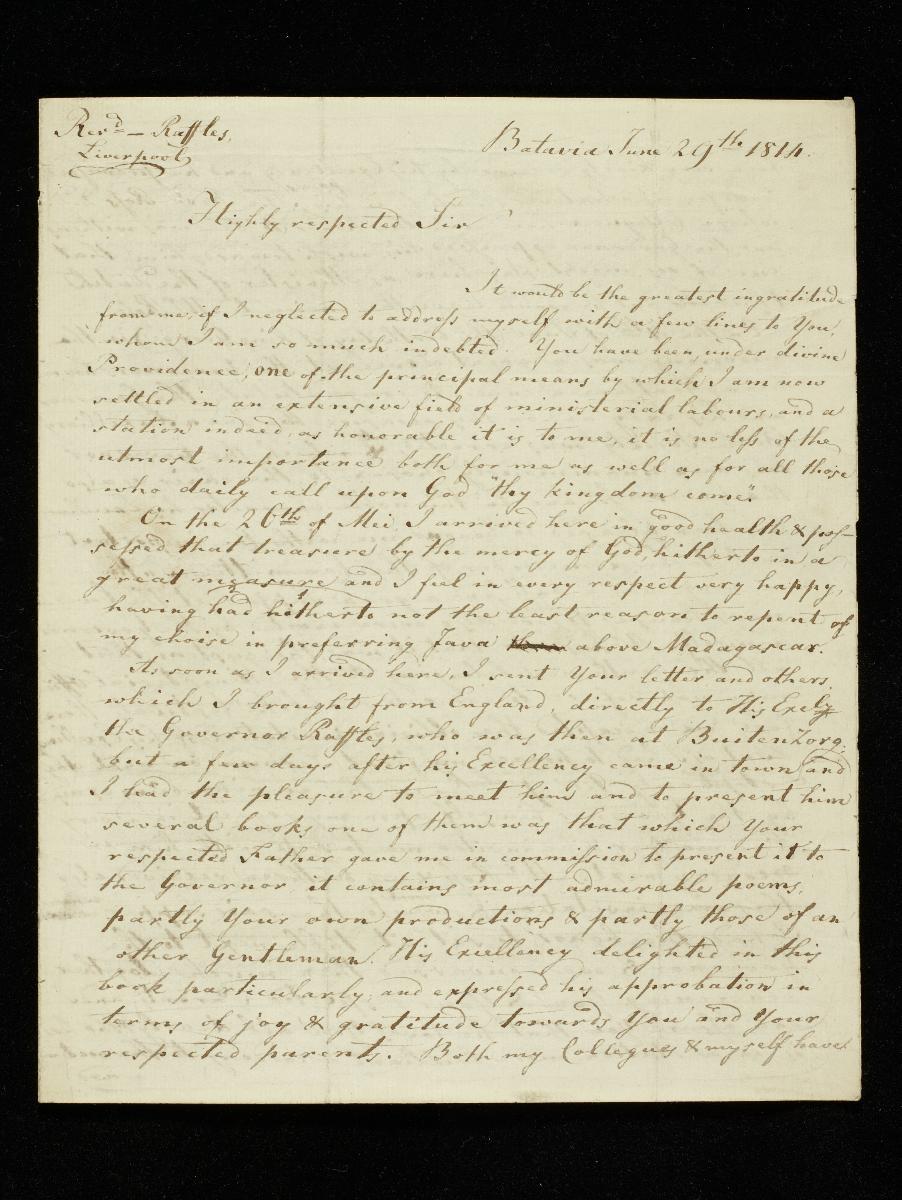 Revd — Raffles,
Liverpool
Batavia June 29th 1814.
Highly respected Sir
It would be the greatest ingratitude
from me, if I neglected to address myself with a few lines to You,
whom I am so much indebted. You have been, under divine
Providence, one of the principal means by which I am now
settled in an extensive field of ministerial labours, and a
station indeed, as honorable it is to me, it is no less of the
utmost importance both for me as well as for all those
who daily call upon God "thy kingdom come".
On the 26th of Mei I arrived here in good health & pos-
sessed that treasure by the mercy of God, hitherto in a
great measure and I feel in every respect very happy,
having had hitherto not the least reason to repent of
my choise in preferring Java above Madagascar.
As soon as I arrived here, I sent Your letter and others,
which I brought from England, directly to His Excly
the Governor Raffles, who was then at BuitenZorg;
but a few days after his Excellency came in town and
I had the pleasure to meet him and to present him
several books, one of them was that which Your
respected Father gave me in commission to present it to
the Governor, it contains most admirable poems,
partly Your own productions & partly those of an
other Gentleman. His Excellency delighted in this
book particularly, and expressed his approbation in
terms of joy & gratitude towards You and Your
respected parents. Both my Collegues & myself have